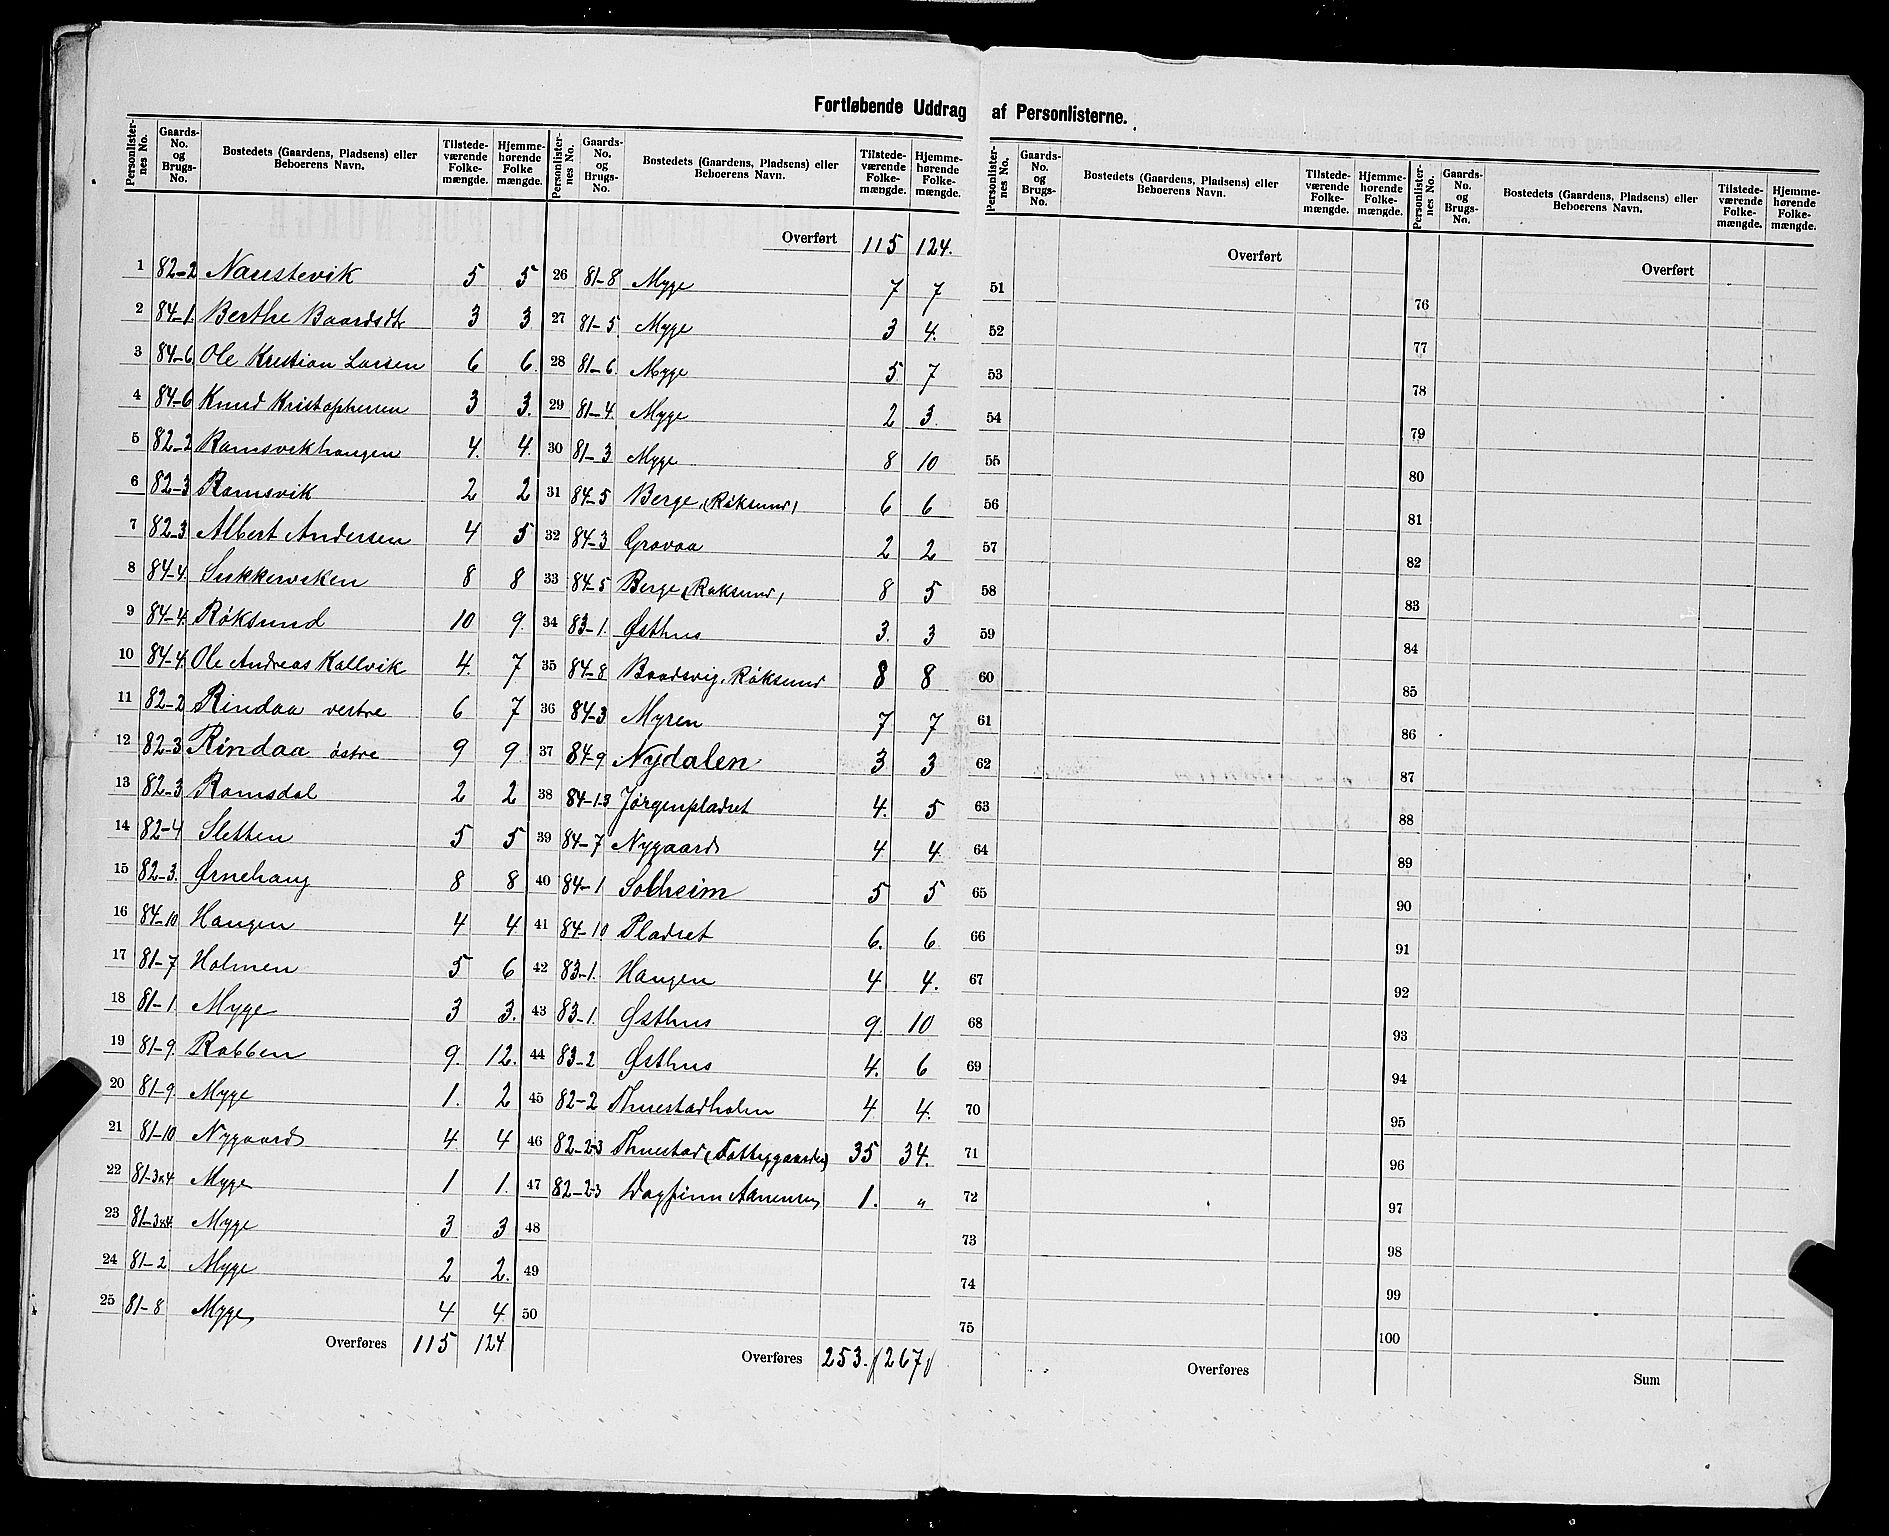 Fortløbende Uddrag af Personlisterne.
Personlister-nes No. | Gaards-No. og Brugs-No. | Bostedets (Gaardens, Pladsens) eller Beboerens Navn. | Tilstede-værende Folke-mængde. | Hjemme-hørende Folke mængde.
1 82-2 Naustevik 5 5
2 84-1. Berthe Baardsdtr 3 3.
3 84-6 Ole Kristian Larsen 6 6.
4 84-6 Knud Kristophersen 3 3.
5 82-2 Ramsvikhaugen 4. 4.
6 82-3 Ramsvik 2 2
7 82-3 Albert Andersen 4 5
8 84-4. Sukkerviken 8 8
9 84-4. Røksund 10 9.
10 84-4 Ole Andreas Kallvik 4. 7
11 82-2 Rindaa vestre 6 7
12 82-3 Rindaa østre 9 9.
13 82-3 Ramsdal 2 2
14 82-4 Sletten 5 5
15 82-3. Ørnehaug 8 8
16 84-10 Haugen 4 4
17 81-7 Holmen 5 6
18 81-1. Myge 3 3.
19 81-9. Robben 9. 12.
20 81-9. Myge 1. 2
21 81-10 Nygaard 4 4
22 81-3x4 Myge 1 1.
23 81-3x4. Myge 3 3
24 81-2 Myge 2 2.
25 81-8 Myge 4 4.
Overføres 115 124
Personlister-nes No. | Gaards-No. og Brugs-No. | Bostedets (Gaardens, Pladsens) eller Beboerens Navn. | Tilstede-værende Folke-mængde. | Hjemme-hørende Folke-mængde.
Overført 115 124.
26 81-8 Myge 7 7
27 81-5. Myge 3 4.
28 81-6. Myge 5. 7
29 81-4. Myge 2 3.
30 81-3 Myge 8 10
31 84-5 Berge, (Røksund) 6 6
32 84-3 Grovaa 2 2
33 84-5 Berge (Røksund) 8 5
34 83-1. Østhus 3. 3
35 84-8 Baadsvig, Røksund 8 8
36 84-3 Myren 7 7
37 84-9 Nydalen 3 3
38 84-1.3 Jørgenpladset 4. 5
39 84-7 Nygaard 4 4
40 84-1 Solheim 5 5
41 84-10 Pladset 6. 6
42 83-1. Haugen 4 4.
43 83-1. Østhus 9 10
44 83-2 Østhus 4. 6
45 82-2 Thuestadholm 4 4.
46 82-2-3 Thuestad (Fattiggaarden) 35 34.
47 82-2-3 Dagfinn Aanensen 1. „
48
49
50
Overføres 253. 267
Personlister-nes No. | Gaards-No. og Brugs-No. | Bostedets (Gaardens, Pladsens) eller Beboerens Navn. | Tilstede-værende Folke-mængde. | Hjemme-hørende Folke-mængde.
Overført
51
52
53
54
55
56
57
58
59
60
61
62
63
64
65
66
67
68
69
70
71
72
73
74
75
Overføres
Personlister-nes No. | Gaards-No. og Brugs-No. | Bostedets (Gaardens, Pladsens) eller Beboerens Navn. | Tilstede-værende Folke-mængde. | Hjemme-hørende Folke-mængde.
Overført
76
77
78
79
80
81
82
83
84
85
86
87
88
89
90
91
92
93
94
95
96
97
98
99
100
Sum